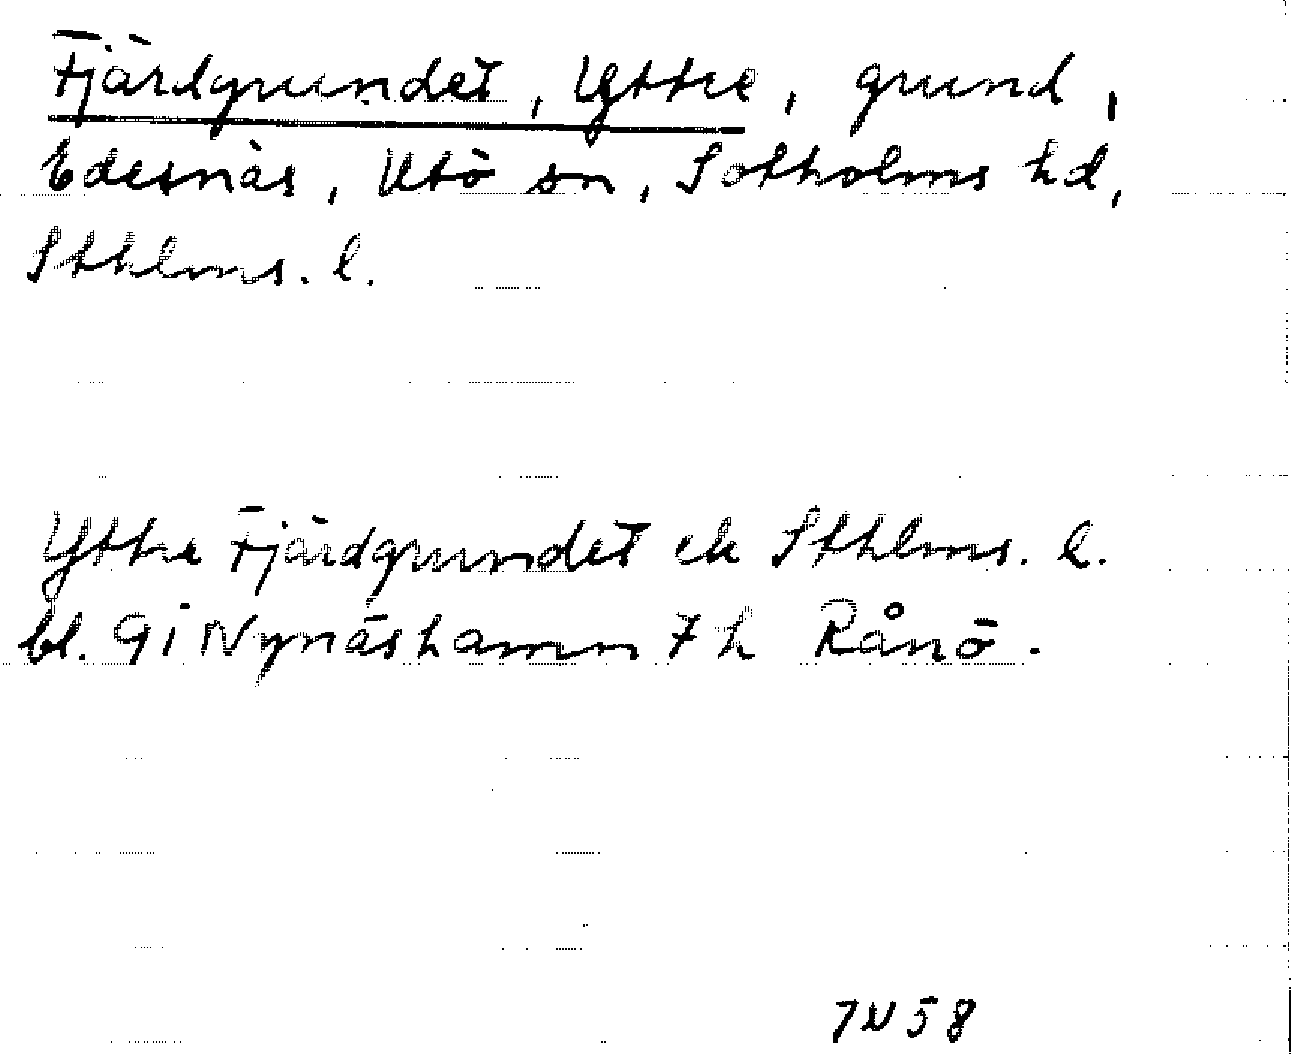 Fjärdgrundet, Yttre, grund,
Edesnäs, Utö sn, Sotholms hd,
Sthlms. l.
Yttre Fjärdgrundet ek Sthlms. l.
bl. 9 i Nynäshamn 7 h Rånö.
7 N 58